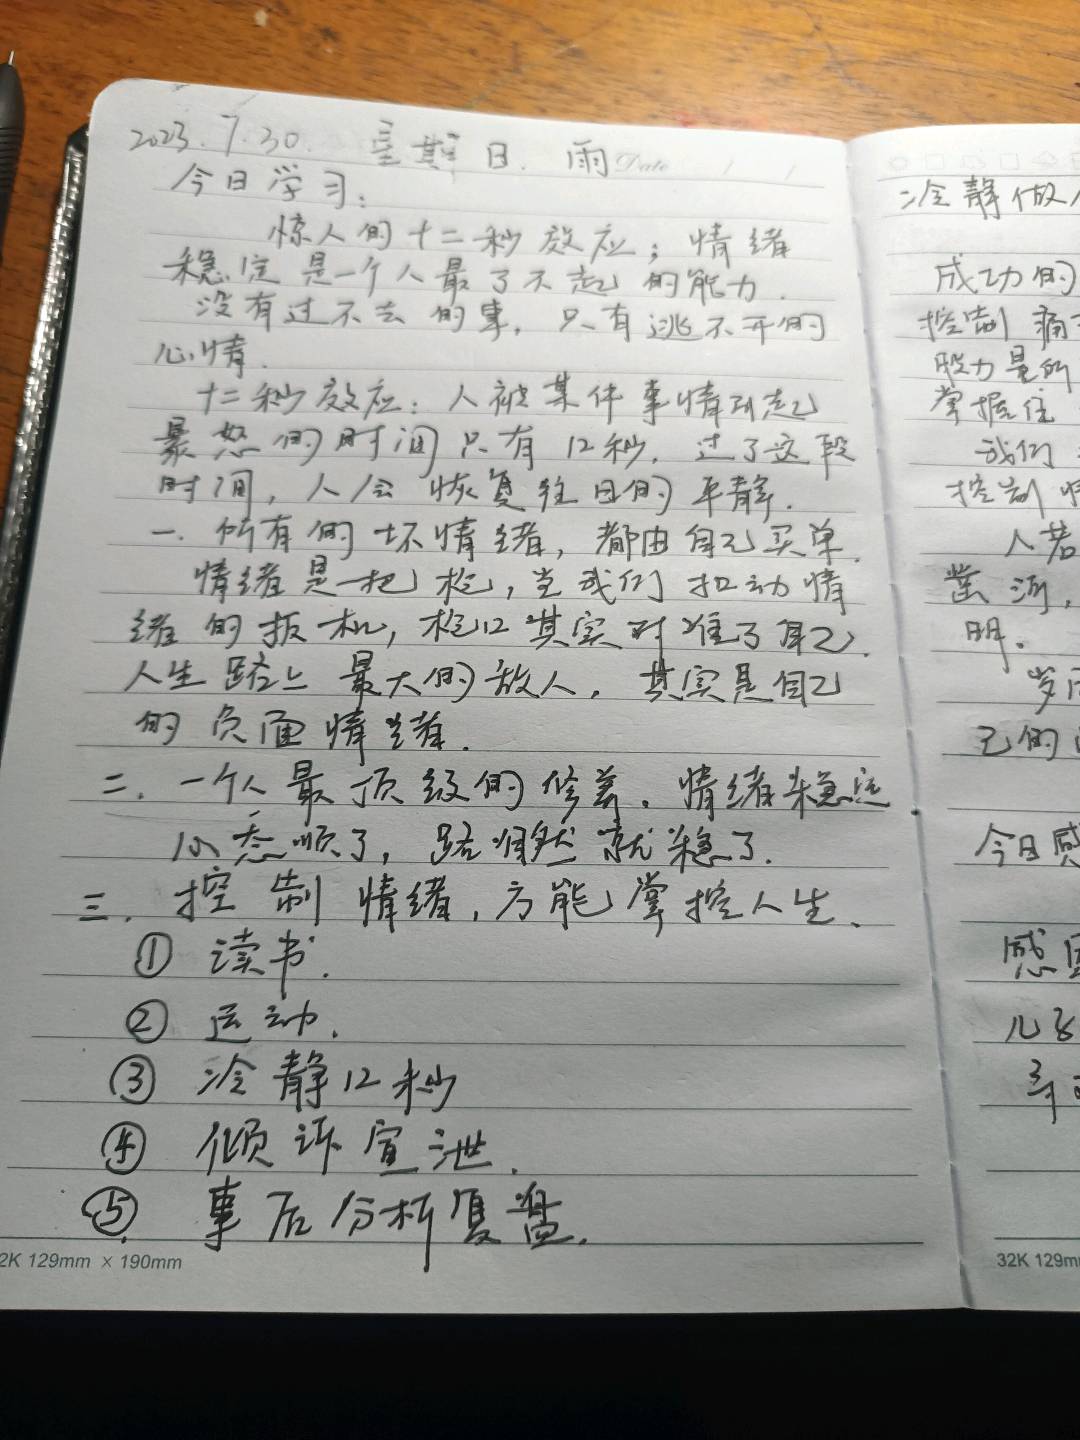 2023.7.30. 星期日. 雨 Date / /
今日学习:
惊人的十二秒效应；情绪
稳定是一个人最了不起的能力.
没有过不去的事, 只有逃不开的
心情.
十二秒效应: 人被某件事情引起
暴怒的时间只有12秒, 过了这段
时间, 人会恢复往日的平静.
一. 所有的坏情绪, 都由自己买单.
情绪是一把枪, 当我们扣动情
绪的扳机, 枪口其实对准了自己.
人生路上最大的敌人, 其实是自己
的负面情绪.
二. 一个人最顶级的修养. 情绪稳定
心态顺了, 路自然就稳了.
三. 控制情绪, 方能掌控人生.
① 读书.
② 运动.
③ 冷静12秒
④ 倾诉宣泄.
⑤ 事后分析复盘.
2K 129mm × 190mm
冷静做人
成功的
控制痛
股力量所
掌握住
我们
控制情
人若
凿河,
明.
岁月
己的
今日感
感恩
儿
32K 129mm